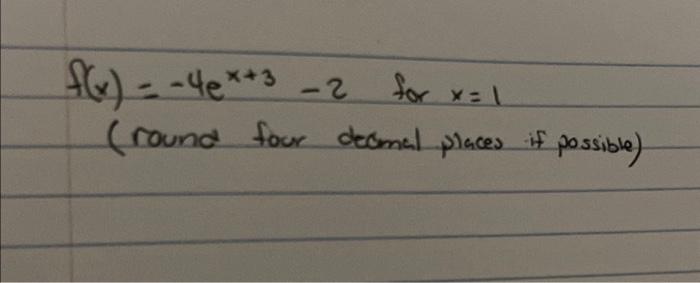 f(x) = -4e^{x+3} - 2 for x = 1
(round four decimal places if possible)